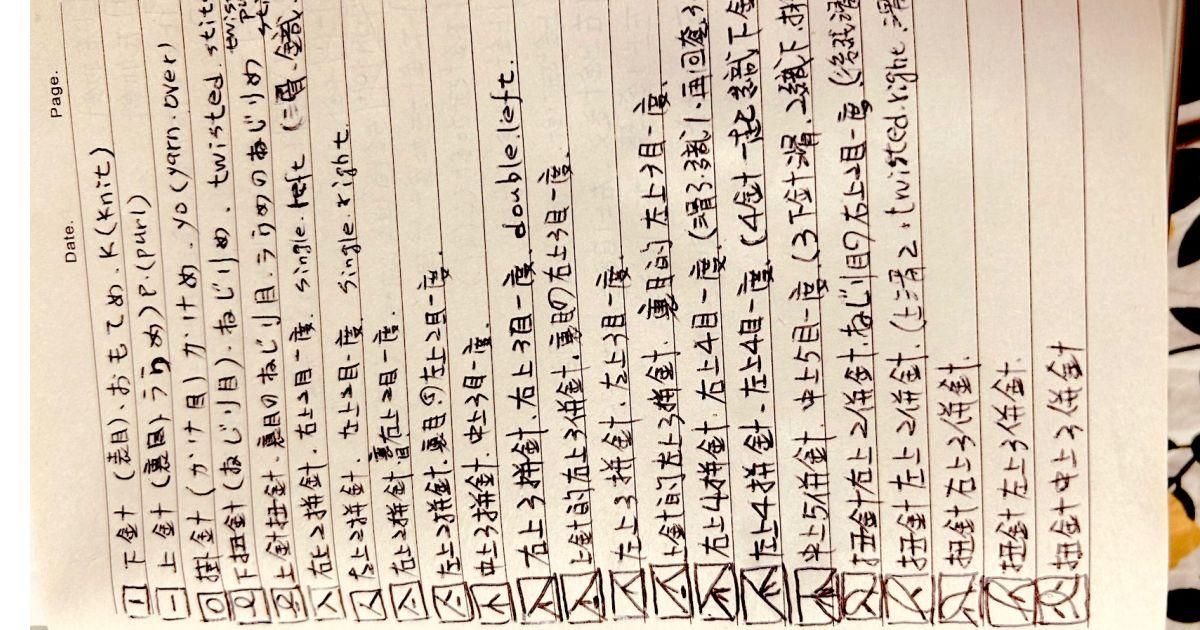 Date. Page.
下針 (表目). おもてめ. K (knit)
上針 (裏目) うらめ) P. (purl)
掛針 (かけ目) かけめ. yo (yarn. over)
下扭針 (ねじり目). ねじりめ. twisted. stit
上針扭針. 裏目のねじり目. うらめのねじりめ
右上2拼針. 右上2目一度. single. left
左上2拼針. 左上2目一度. single. right.
右上2拼針. 裏目右上2目一度.
左上2拼針. 裏目の左上2目一度.
中上3拼針. 中上3目一度.
右上3拼針. 右上3目一度. double. left.
上針的右上3併針. 裏目の右上3目一度.
左上3拼針. 左上3目一度.
上針的左上3拼針. 裏目的左上3目一度.
右上4拼針. 右上4目一度. (滑3. 織1. 再回套3
左上4拼針. 左上4目一度. (4針一起織下針
中上5併針. 中上5目一度. (3下針滑. 2織下.
扭針右上2併針. ねじり目の右上2目一度
扭針左上2併針. (上滑2. twisted. right. 滑
扭針右上3併針.
扭針左上3併針.
扭針中上3併針